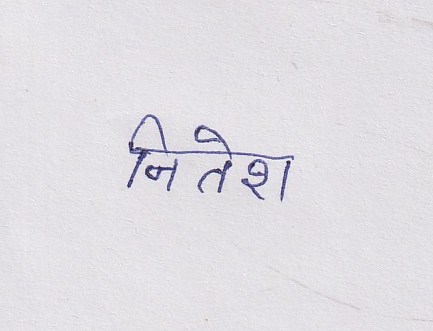 नितेश